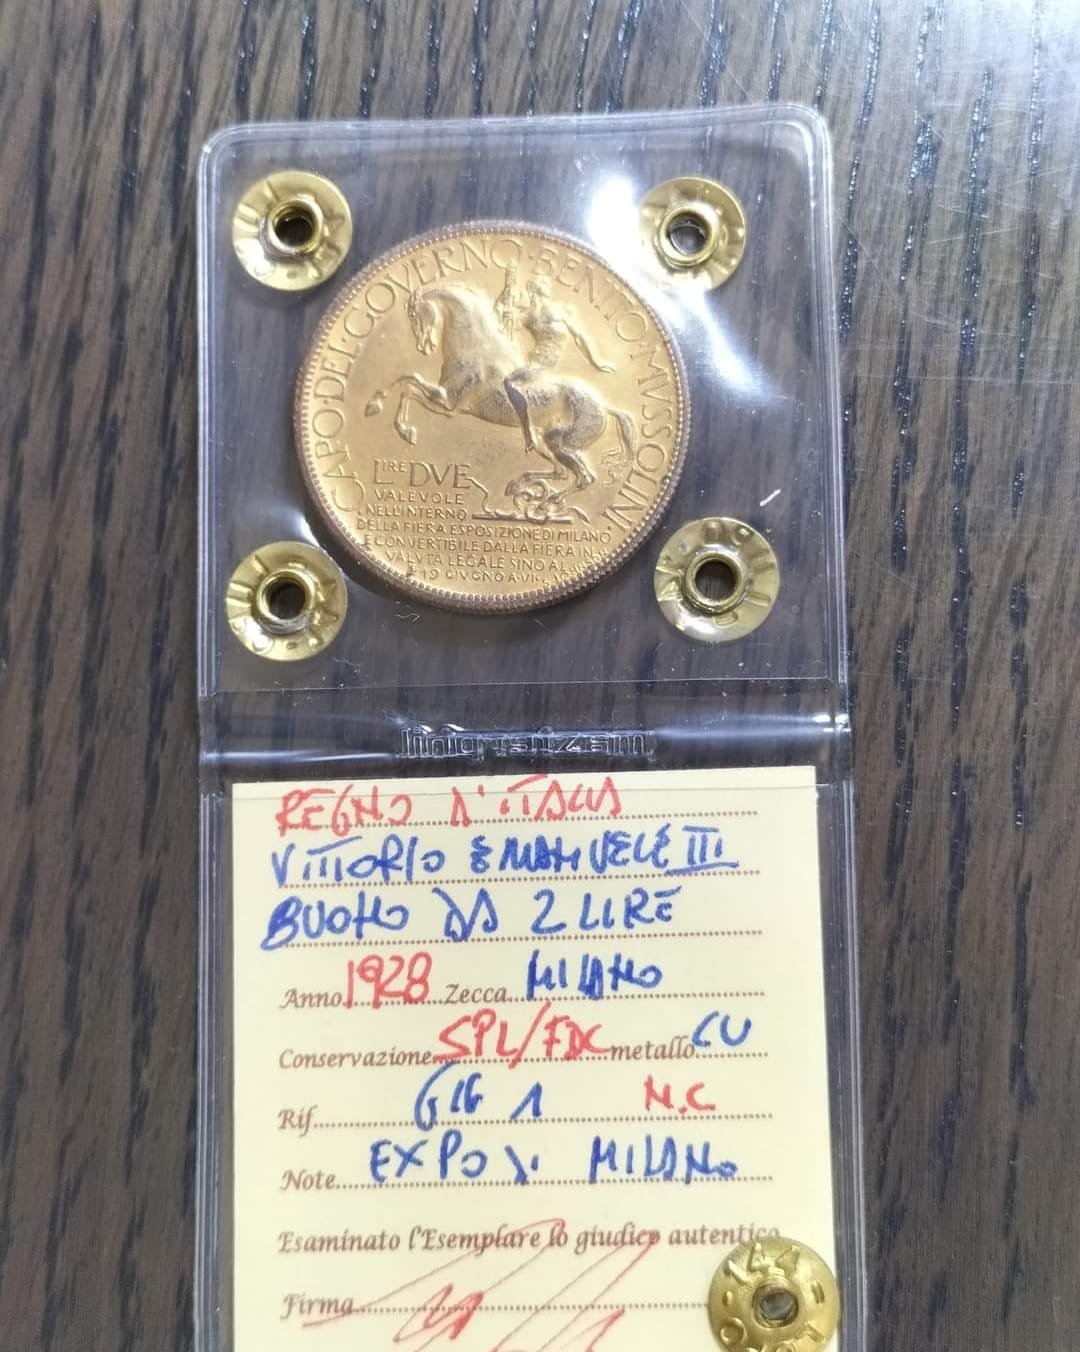 CAPO·DEL·GOVERNO·BENITO·MVSSOLINI
LIRE DVE
VALEVOLE
NELL'INTERNO
DELLA FIERA ESPOSIZIONE DI MILANO
E CONVERTIBILE DALLA FIERA IN
VALVTA LEGALE SINO AL
19 GIVGNO A·VI·
REGNO D'ITALIA
VITTORIO EMANUELE III
BUONO DA 2 LIRE
Anno 1928 Zecca MILANO
Conservazione SPL/FDC metallo CU
Rif. GIG 1 N.C
Note EXPO DI MILANO
Esaminato l'Esemplare lo giudico autentico
Firma